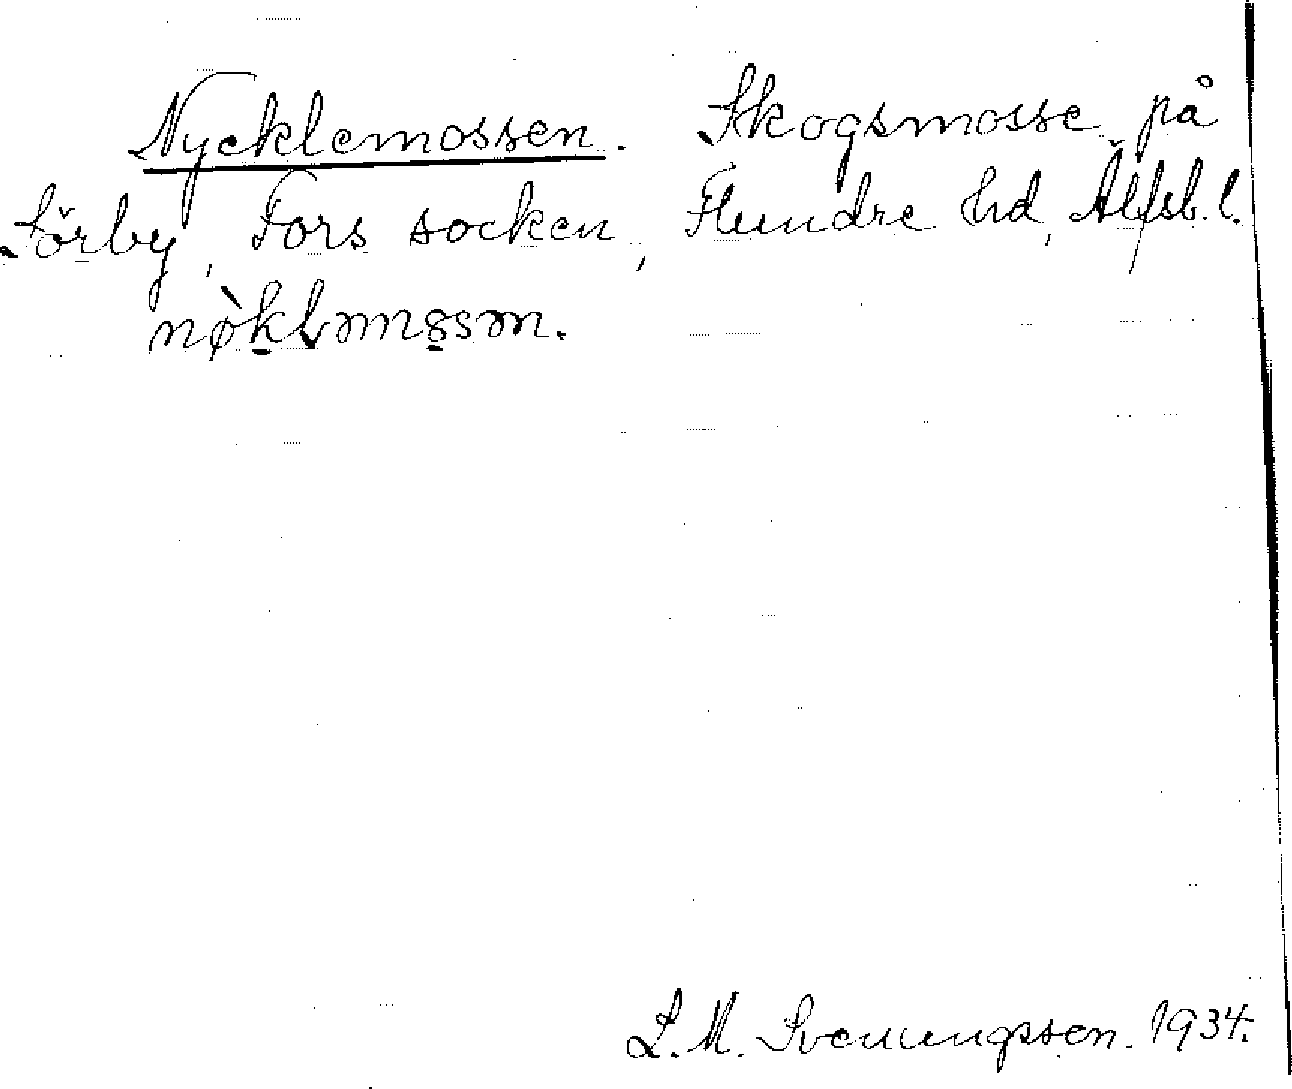 Nycklemossen. Skogsmosse på
Sörby, Fors socken, Flundre hd, Älfsb. l.
nø̀kḷəmo̤ssən.
L. M. Svenungsson. 1934.